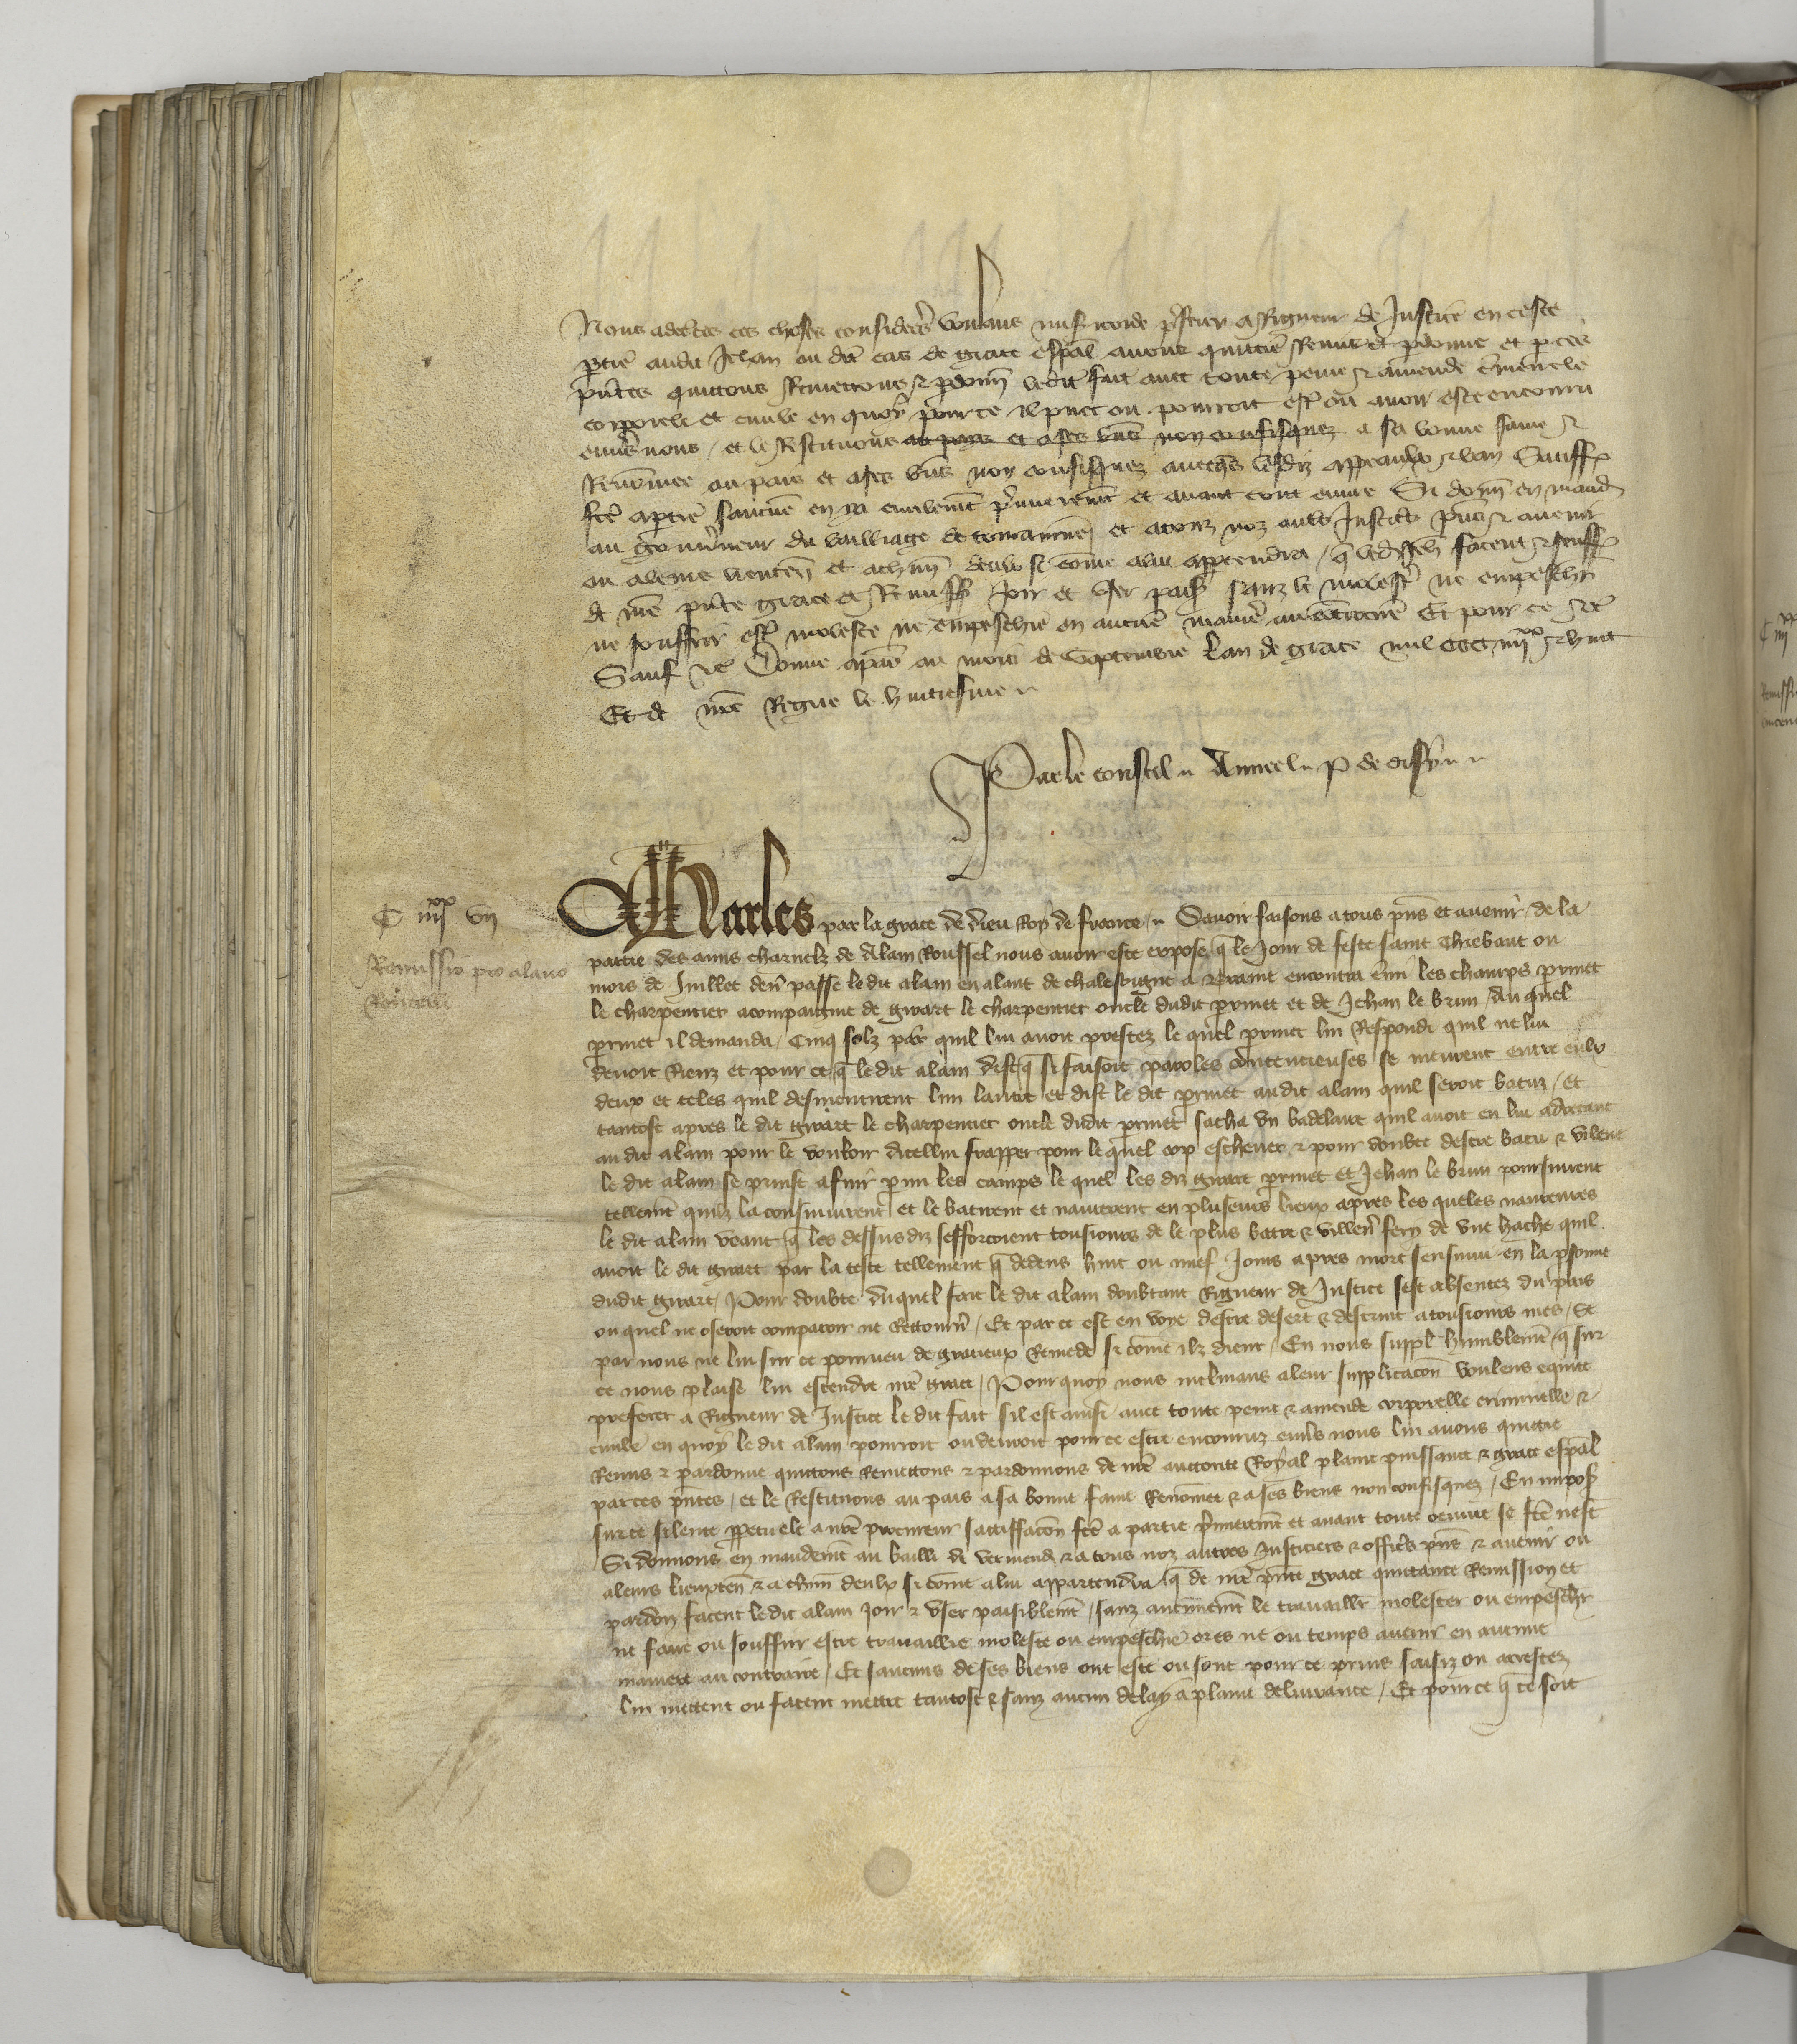 Nous adecertes ces choses considerees voulans misericorde preferer a Rigueur de Justice en ceste
partie audit Jehan ou dit cas de grace espal avons quittie Remis et pardonne et par ces
pntes quittons Remettons & pardonn ledit fait avec toute peine & amende criminele
corporele et civile en quoy pour ce il puet ou pourroit estre ou avoir este encouru
envers nous / et le Restituons au pays et a ses biens non confisquez a sa bonne fame &
Renommee au pais et a ses biens non confisquez avecques lesdiz appeaulx & ban Satisff
fce a partie sancune en ya civilement premierement et avant tout euvre Si donn en mand
au gouverneur du bailliage de et a touz noz autres Justic pns & avenir
ou a leurs lieuten et a chun deulx si come a lui appartendra / q ledit Jeh facent & seuff
de nre pnte grace et Remiss Joir et user paisib sanz le molester ne empeschier
ne souffrir estre moleste ne empeschie en aucune maniere au contraire Et pour ce &c
Sauf &c Donne a paris ou mois de Septembre Lan de grace mil ccc iiii xx & huit
Et de nre Regne le huitiesme
Par le conseil Anneel P de dissy
C iiii xx vii
Remissio pro alano
Rousselli
Charles par la grace de dieu Roy de france / Savoir faisons a tous pns et avenir / de la
partie des amis charnelz de Alain Roussel nous avoir este expose q le Jour de feste saint Thiebaut ou
mois de Juillet derr passe le dit alain en alant de chalesvigne a encontra emmi les champs perinet
le charpentier acompaignie de girart le charpentier oncle dudit perinet et de Jehan le brun / Au quel
perinet il demanda / Cinq solz par quil lui avoit prestez le quel perinet lui Respondi quil ne lui
devoit Riens et pour ce q le dit alain dist q si faisoit paroles contencieuses se meurent entre eulx
deux et teles quil desmentirent lun lautre et dist le dit perinet audit alain quil seroit batuz / Et
tantost apres le dit girart le charpentier oncle dudit perinet sacha un badelaire quil avoit en lui adrecant
au dit alain pour le vouloir dicellui frapper pour le quel cop eschever & pour doubte destre batu & vilene
le dit alain se prinst a fuir parmi les camps le quel les diz girart perinet et Jehan le brun poursuirent
tellemt quilz la consuiuirent et le batirent et navrerent en pluseurs lieux apres les queles navreures
le dit alain veant q les dessusdiz sefforcoient tousiours de le plus batre & villener fery de une hache quil
avoit le dit girart par la teste tellement q dedens huit ou neuf Jours apres mort sensuui en la personne
dudit girart / Pour doubte duquel fait le dit alain doubtant Rigueur de Justice sest absentez du pais
ou quel ne oseroit comparoir ne Retourner / Et par ce est en voye destre desert & destruit a tousiours mes / Se
par nous ne lui sur ce pourveu de gracieux Remede si come ilz dient / En nous suppl humblemt q sur
ce nous plaise lui estendre nre grace / Pour quoy nous inclinans a leur supplicacon voulens equite
preferer a Rigueur de Justice le dit fait sil est ainsi avec toute peine & amende corporelle criminelle &
civile en quoy le dit alain pourroit ou devroit pour ce estre encouruz envers nous lui avons quittie
Remis & pardonne quittons Remettons & pardonnons de nre auctorite Royal plaine puissance & grace espal
par ces pntes / et le Restituons au pais a sa bonne fame Renommee & a ses biens non confisquez / En impos
sur ce silence ppetuele a nre procureur satisffacon fce a partie primieremt et avant toute oeuvre se fce nest
Si donnons en mandemt au bailli de vermend & a tous noz autres Justiciers & officiers pns & avenir ou
a leurs lieuxten & a chun deulx si come a lui appartendra q de nre pnte grace quittance Remission et
pardon facent le dit alain Joir & user paisiblemt / sanz aucunemt le travaillr molester ou empeschr
ne faire ou souffrir estre travaillie moleste ou empeschie ores ne ou temps avenir en aucune
maniere au contraire / Et saucuns de ses biens ont este ou sont pour ce prins saisiz ou arrestez
lui mettent ou facent mettre tantost & sanz aucun delay a plaine delivrance / Et pour ce q ce soit